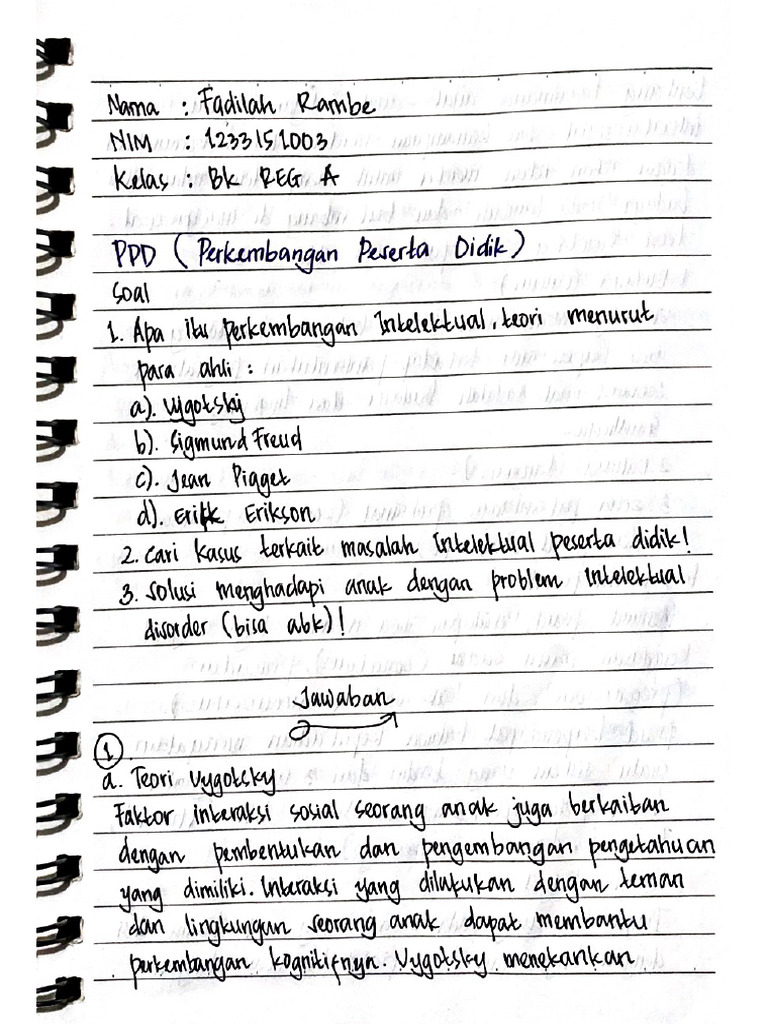 Nama : Fadilah Rambe
NIM : 1233151003
Kelas : BK REG A
PPD ( Perkembangan Peserta Didik )
Soal
1. Apa itu perkembangan Intelektual, teori menurut
para ahli :
a). Vygotsky
b). Sigmund Freud
c). Jean Piaget
d). Erik Erikson
2. Cari kasus terkait masalah Intelektual peserta didik!
3. Solusi menghadapi anak dengan problem Intelektual
disorder (bisa abk)!
Jawaban
1
a. Teori Vygotsky
Faktor interaksi sosial seorang anak juga berkaitan
dengan pembentukan dan pengembangan pengetahuan
yang dimiliki. Interaksi yang dilakukan dengan teman
dan lingkungan seorang anak dapat membantu
perkembangan kognitifnyn. Vygotsky menekankan